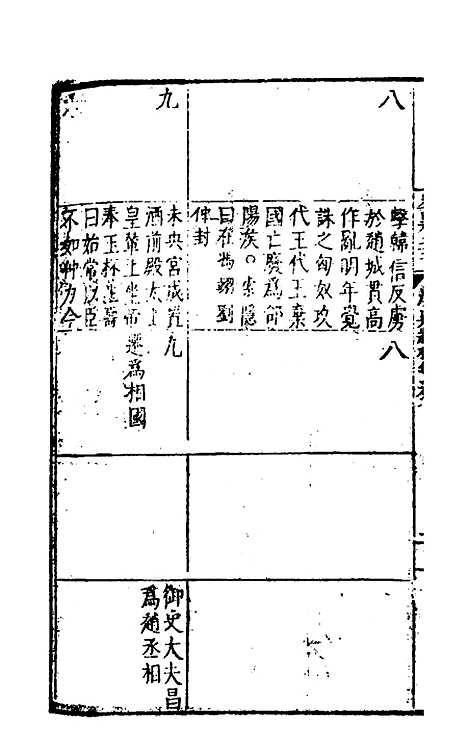 八
擊韓信反虜
於趙城貫高
作亂明年覺
誅之匈奴攻
代王代王棄
國亡廢為郃
陽侯○索隱
曰在馮翊劉
仲封
八
九
未央宮成置
酒前殿太上
皇輦上坐帝
奉玉杯上壽
曰始常以臣
不如仲力今
九
遷為相國
御史大夫昌
為趙丞相